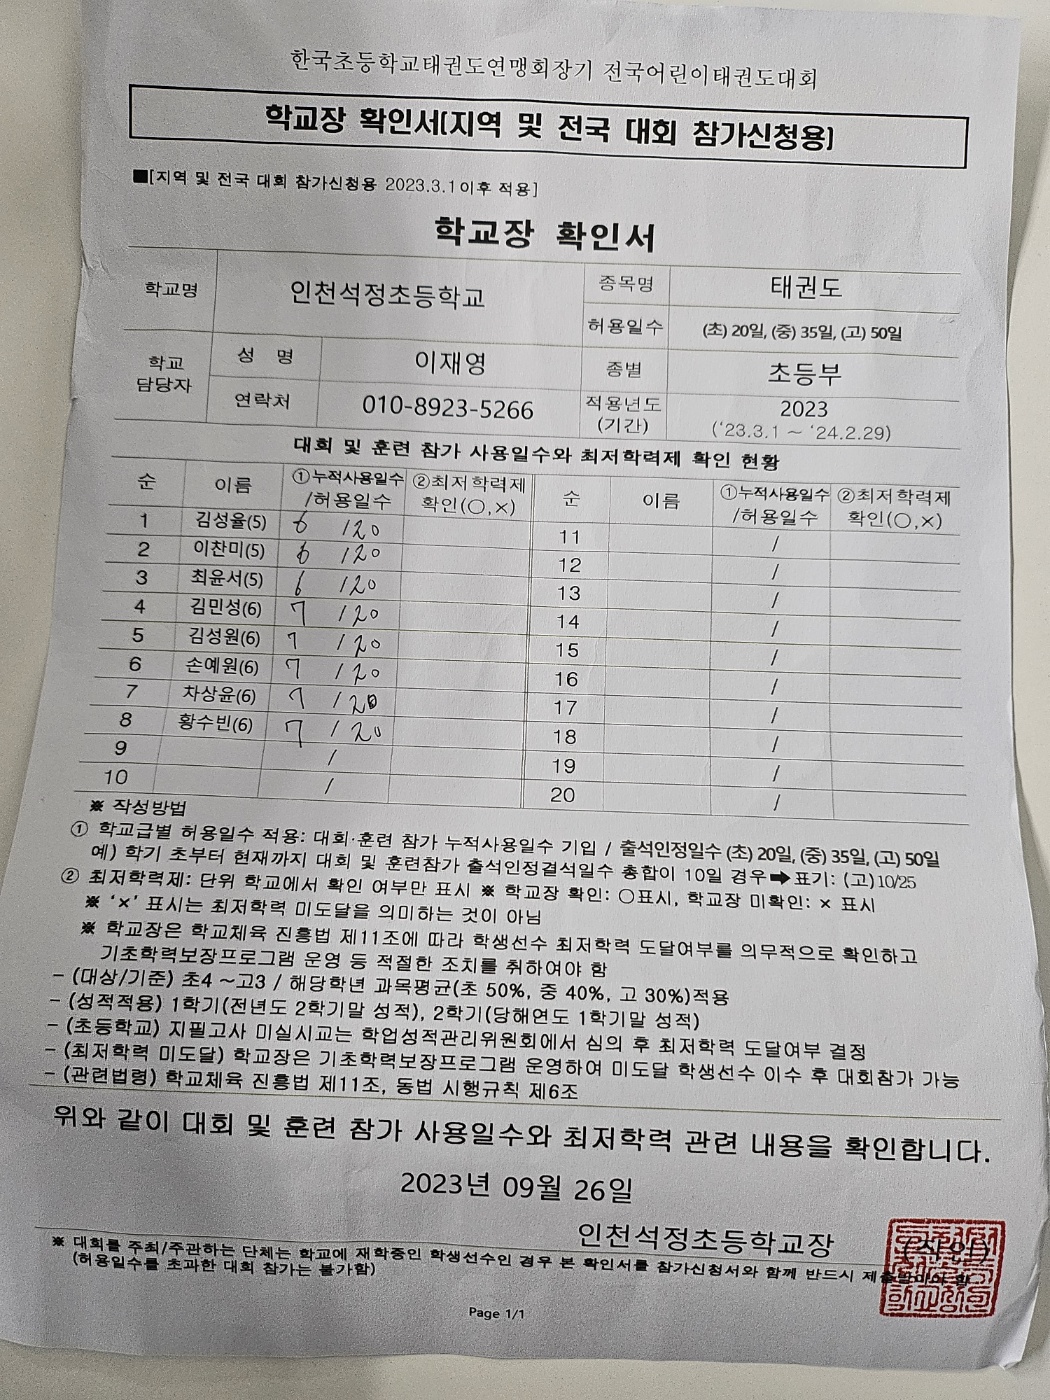 한국초등학교태권도연맹회장기 전국어린이태권도대회
학교장 확인서(지역 및 전국 대회 참가신청용)
■[지역 및 전국 대회 참가신청용 2023.3.1이후 적용]
학교장 확인서
학교명 인천석정초등학교 종목명 태권도
허용일수 (초) 20일, (중) 35일, (고) 50일
학교 담당자 성 명 이재영 종별 초등부
연락처 010-8923-5266 적용년도 (기간) 2023 ('23.3.1 ~ '24.2.29)
대회 및 훈련 참가 사용일수와 최저학력제 확인 현황
순 이름 ①누적사용일수 /허용일수 ②최저학력제 확인(○,×) 순 이름 ①누적사용일수 /허용일수 ②최저학력제 확인(○,×)
1 김성율(5) 6 /20 11 /
2 이찬미(5) 6 /20 12 /
3 최윤서(5) 6 /20 13 /
4 김민성(6) 7 /20 14 /
5 김성원(6) 7 /20 15 /
6 손예원(6) 7 /20 16 /
7 차상윤(6) 7 /20 17 /
8 황수빈(6) 7 /20 18 /
9 / 19 /
10 / 20 /
※ 작성방법
① 학교급별 허용일수 적용: 대회·훈련 참가 누적사용일수 기입 / 출석인정일수 (초) 20일, (중) 35일, (고) 50일
예) 학기 초부터 현재까지 대회 및 훈련참가 출석인정결석일수 총합이 10일 경우➡표기: (고)10/25
② 최저학력제: 단위 학교에서 확인 여부만 표시 ※ 학교장 확인: ○표시, 학교장 미확인: × 표시
※ '×' 표시는 최저학력 미도달을 의미하는 것이 아님
※ 학교장은 학교체육 진흥법 제11조에 따라 학생선수 최저학력 도달여부를 의무적으로 확인하고
기초학력보장프로그램 운영 등 적절한 조치를 취하여야 함
- (대상/기준) 초4 ~고3 / 해당학년 과목평균(초 50%, 중 40%, 고 30%)적용
- (성적적용) 1학기(전년도 2학기말 성적), 2학기(당해연도 1학기말 성적)
- (초등학교) 지필고사 미실시교는 학업성적관리위원회에서 심의 후 최저학력 도달여부 결정
- (최저학력 미도달) 학교장은 기초학력보장프로그램 운영하여 미도달 학생선수 이수 후 대회참가 가능
- (관련법령) 학교체육 진흥법 제11조, 동법 시행규칙 제6조
위와 같이 대회 및 훈련 참가 사용일수와 최저학력 관련 내용을 확인합니다.
2023년 09월 26일
인천석정초등학교장 (직인)
※ 대회를 주최/주관하는 단체는 학교에 재학중인 학생선수인 경우 본 확인서를 참가신청서와 함께 반드시 제출받아야 함
(허용일수를 초과한 대회 참가는 불가함)
Page 1/1